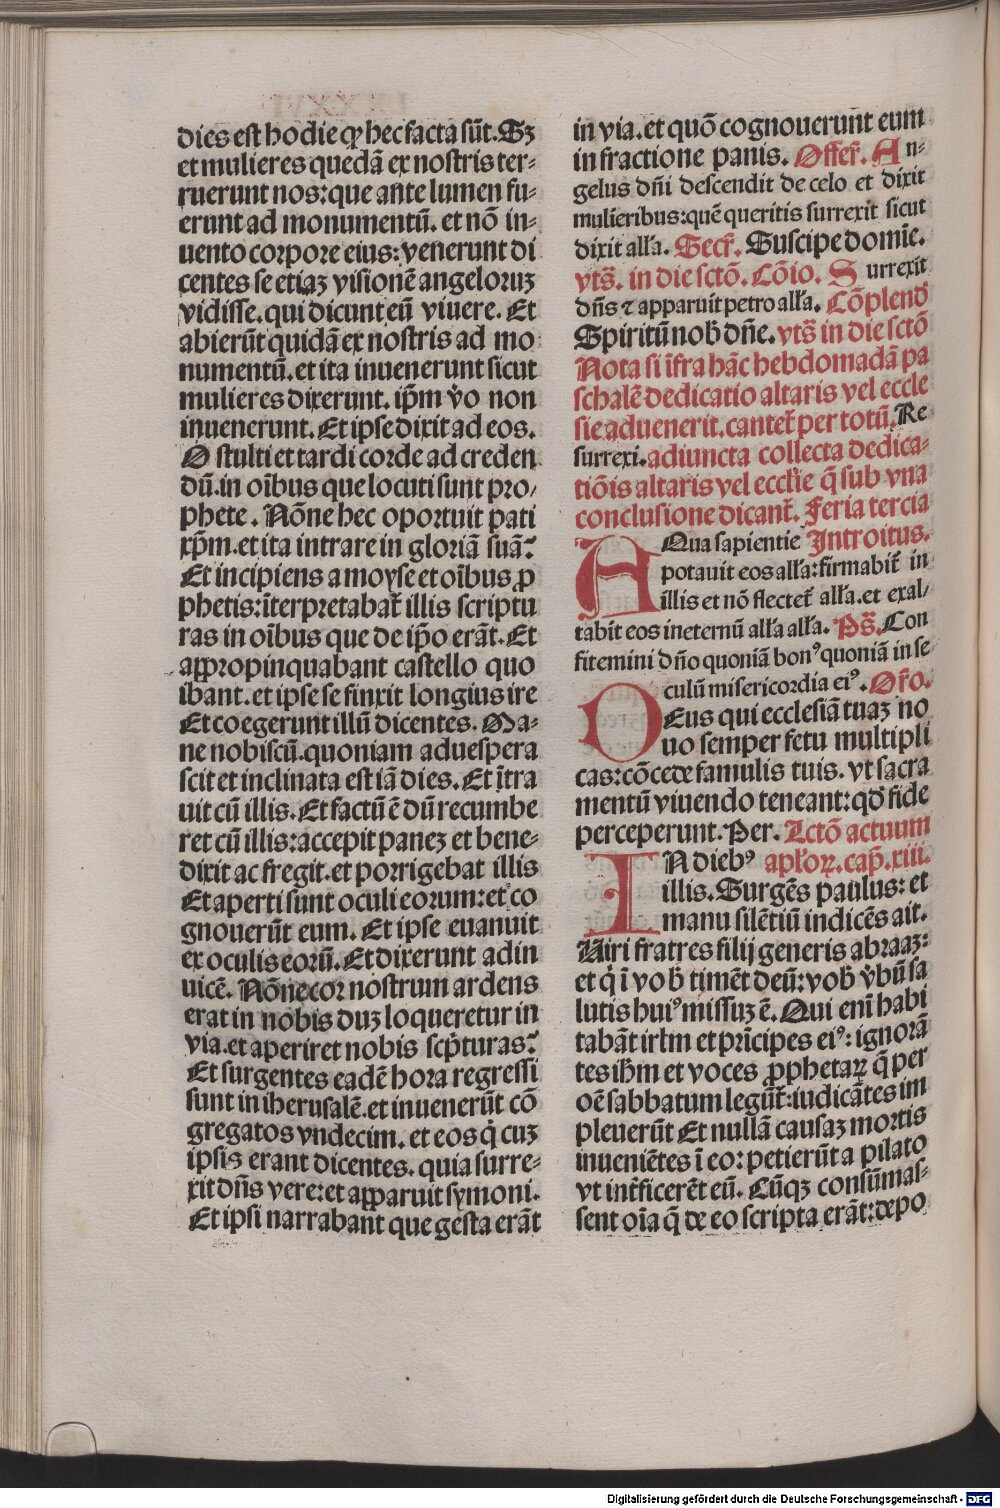 dies est hodie qͥ hec facta sūt. Sꝫ
et mulieres quedā ex nostris ter⸗
ruerunt nos: que ante lumen fu⸗
erunt ad monumentū. et nō in⸗
uento corpore eius: venerunt di
centes se etiaꝫ visionē angeloruꝫ
vidisse. qui dicunt eū viuere. Et
abierūt quidā ex nostris ad mo
numentū. et ita inuenerunt sicut
mulieres dixerunt. ip̄m v̊o non
inuenerunt. Et ipse dixit ad eos.
O stulti et tardi corde ad creden
dū. in oībus que locuti sunt pro⸗
phete. Nōne hec oportuit pati
xp̄m. et ita intrare in gloriā suā?
Et incipiens a moyse et oībus ꝓ
phetis: īterpretabat᷑ illis scriptu
ras in oībus que de ip̄o erāt. Et
appropinquabant castello quo
ibant. et ipse se finxit longius ire
Et coegerunt illū dicentes. Ma⸗
ne nobiscū. quoniam aduespera
scit et inclinata est iā dies. Et ītra
uit cū illis. Et factū ē dū recumbe
ret cū illis: accepit paneꝫ et bene⸗
dixit ac fregit. et porrigebat illis
Et aperti sunt oculi eorum: et co
gnouerūt eum. Et ipse euanuit
ex oculis eorū. Et dixerunt adin
uicē. Nōne cor nostrum ardens
erat in nobis duꝫ loqueretur in
via. et aperiret nobis scp̄turas?
Et surgentes eadē hora regressi
sunt in iherusalē. et inuenerūt cō
gregatos vndecim. et eos q̇ cuꝫ
ipsis erant dicentes. quia surre⸗
xit dn̄s vere: et apparuit symoni.
Et ipsi narrabant que gesta erāt
in via. et quō cognouerunt eum
in fractione panis. Offer̄. An⸗
gelus dn̄i descendit de celo et dixit
mulieribus: quē queritis surrexit sicut
dixit alła. Secr̄. Suscipe domīe.
vts̄. in die sctō. Cōio. Surrexit
dn̄s ⁊ apparuit petro alła. Cōplend̄
Spiritū nob̄ dn̄e. vts̄ in die sctō
Nota si īfra hāc hebdomadā pa
schalē dedicatio altaris vel eccle
sie aduenerit. cantet᷑ per totū. Re
surrexi. adiuncta collecta dedica⸗
tiōis altaris vel eccłie q̄ sub vna
conclusione dicant᷑. Feria tercia
AQua sapientie Introitus.
potauit eos alła: firmabit᷑ in
illis et nō flectet᷑ alła. et exal⸗
tabit eos in eternū alła alła. Ps̄. Con
fitemini dn̄o quoniā bonꝰ quoniā in se
culū misericordia eiꝰ. Or̄o.
DEus qui ecclesiā tuaꝫ no
uo semper fetu multipli
cas: cōcede famulis tuis. vt sacra
mentū viuendo teneant: qd̄ fide
perceperunt. Per. Lctō actuum
IN diebꝰ apłoꝝ. cap̄. xiii.
illis. Surgēs paulus: et
manu silētiū indicēs ait.
Uiri fratres filij generis abraaꝫ:
et q̇ ī vob̄ timēt deū: vob̄ v̄bū sa
lutis huiꝰ missuꝫ ē. Qui enī habi
tabāt irłm et prīcipes eiꝰ: ignorā
tes ihm̄ et voces ꝓphetaꝝ q̄ per
oē sabbatum legūt᷑: iudicātes im
pleuerūt Et nullā causaꝫ mortis
inueniētes ī eo: petierūt a pilato
vt int᷑ficerēt eū. Cūqꝫ consūmas⸗
sent oīa q̄ de eo scripta erāt: depo
Digitalisierung gefördert durch die Deutsche Forschungsgemeinschaft - DFG